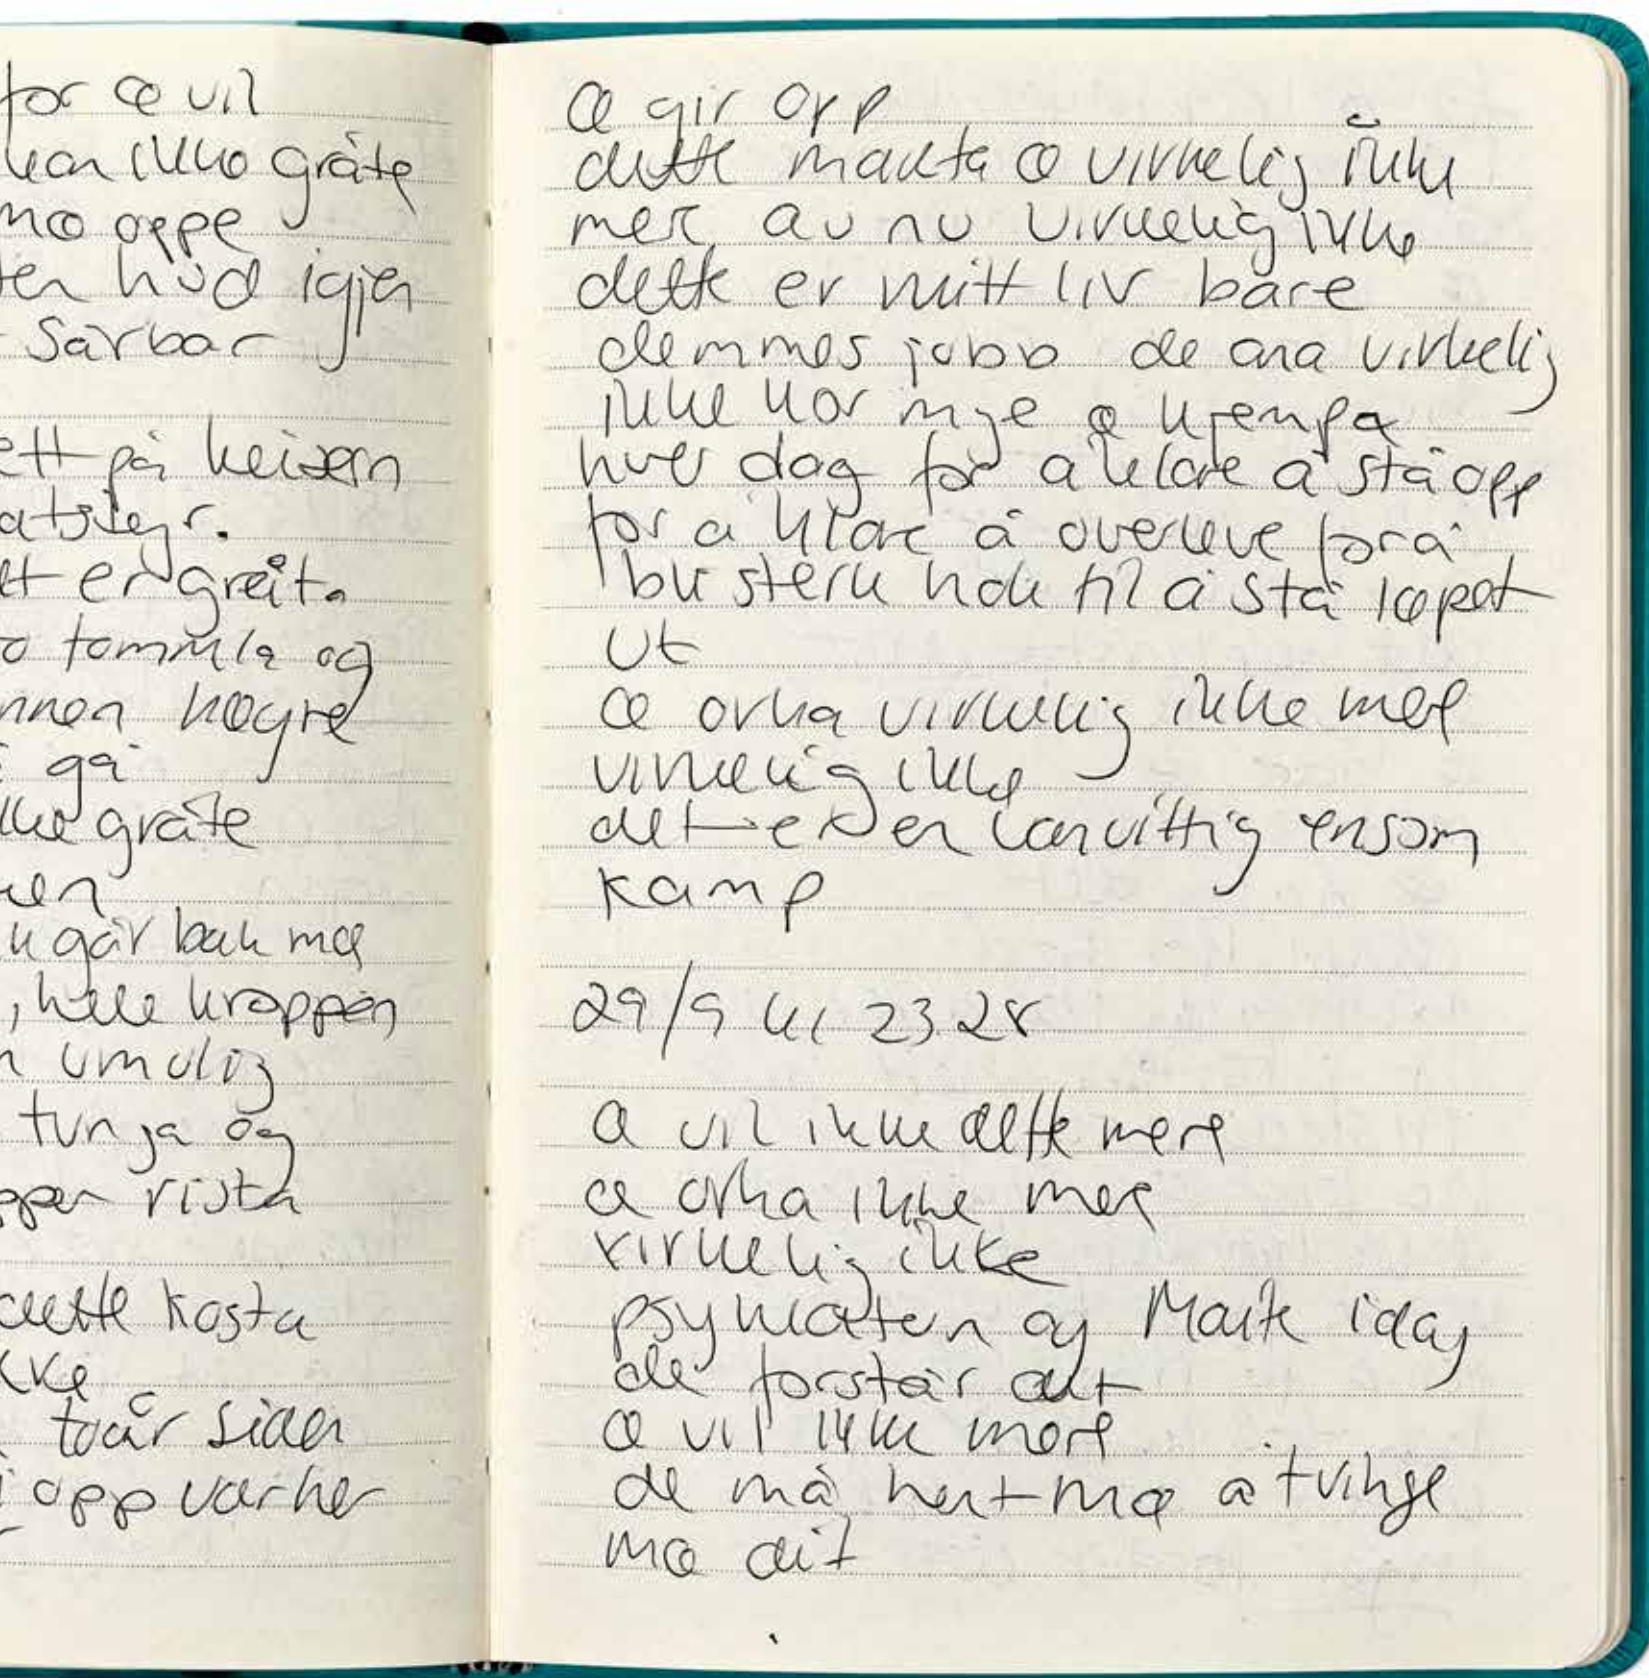 for æ vil
kan ikke gråte
mæ oppe
hud igjen
Sårbar
ett på heisen
er greit.
tommla og
høgre
gå
ikke gråte
går bak mæ
, hele kroppen
umulig
tunja og
rista
dette kosta
ikke
to år siden
opp var her
Æ gir opp
dette makta æ virkelig ikke
mer, au no virkelig ikke
dette er mitt liv bare
demmes jobb de ana virkelig
ikke kor mye æ kjempa
hver dag for å klare å stå opp
for å klare å overleve for å
bli sterk nok til å stå løpet
ut
æ orka virkelig ikke mer
virkelig ikke
det er en vanvittig ensom
kamp
29/9 kl 23.28
Æ vil ikke dette mere
æ orka ikke mer
virkelig ikke
psykiateren og Marit idag
de forstår alt
æ vil ikke mere
de må hent mæ å tvinge
mæ dit